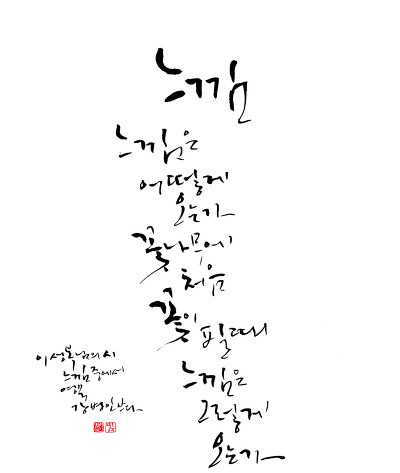 느낌
느낌은
어떻게
오는가
꽃나무에
처음
꽃이 필 때
느낌은
그렇게
오는가
이성복님의 시
느낌 중에서